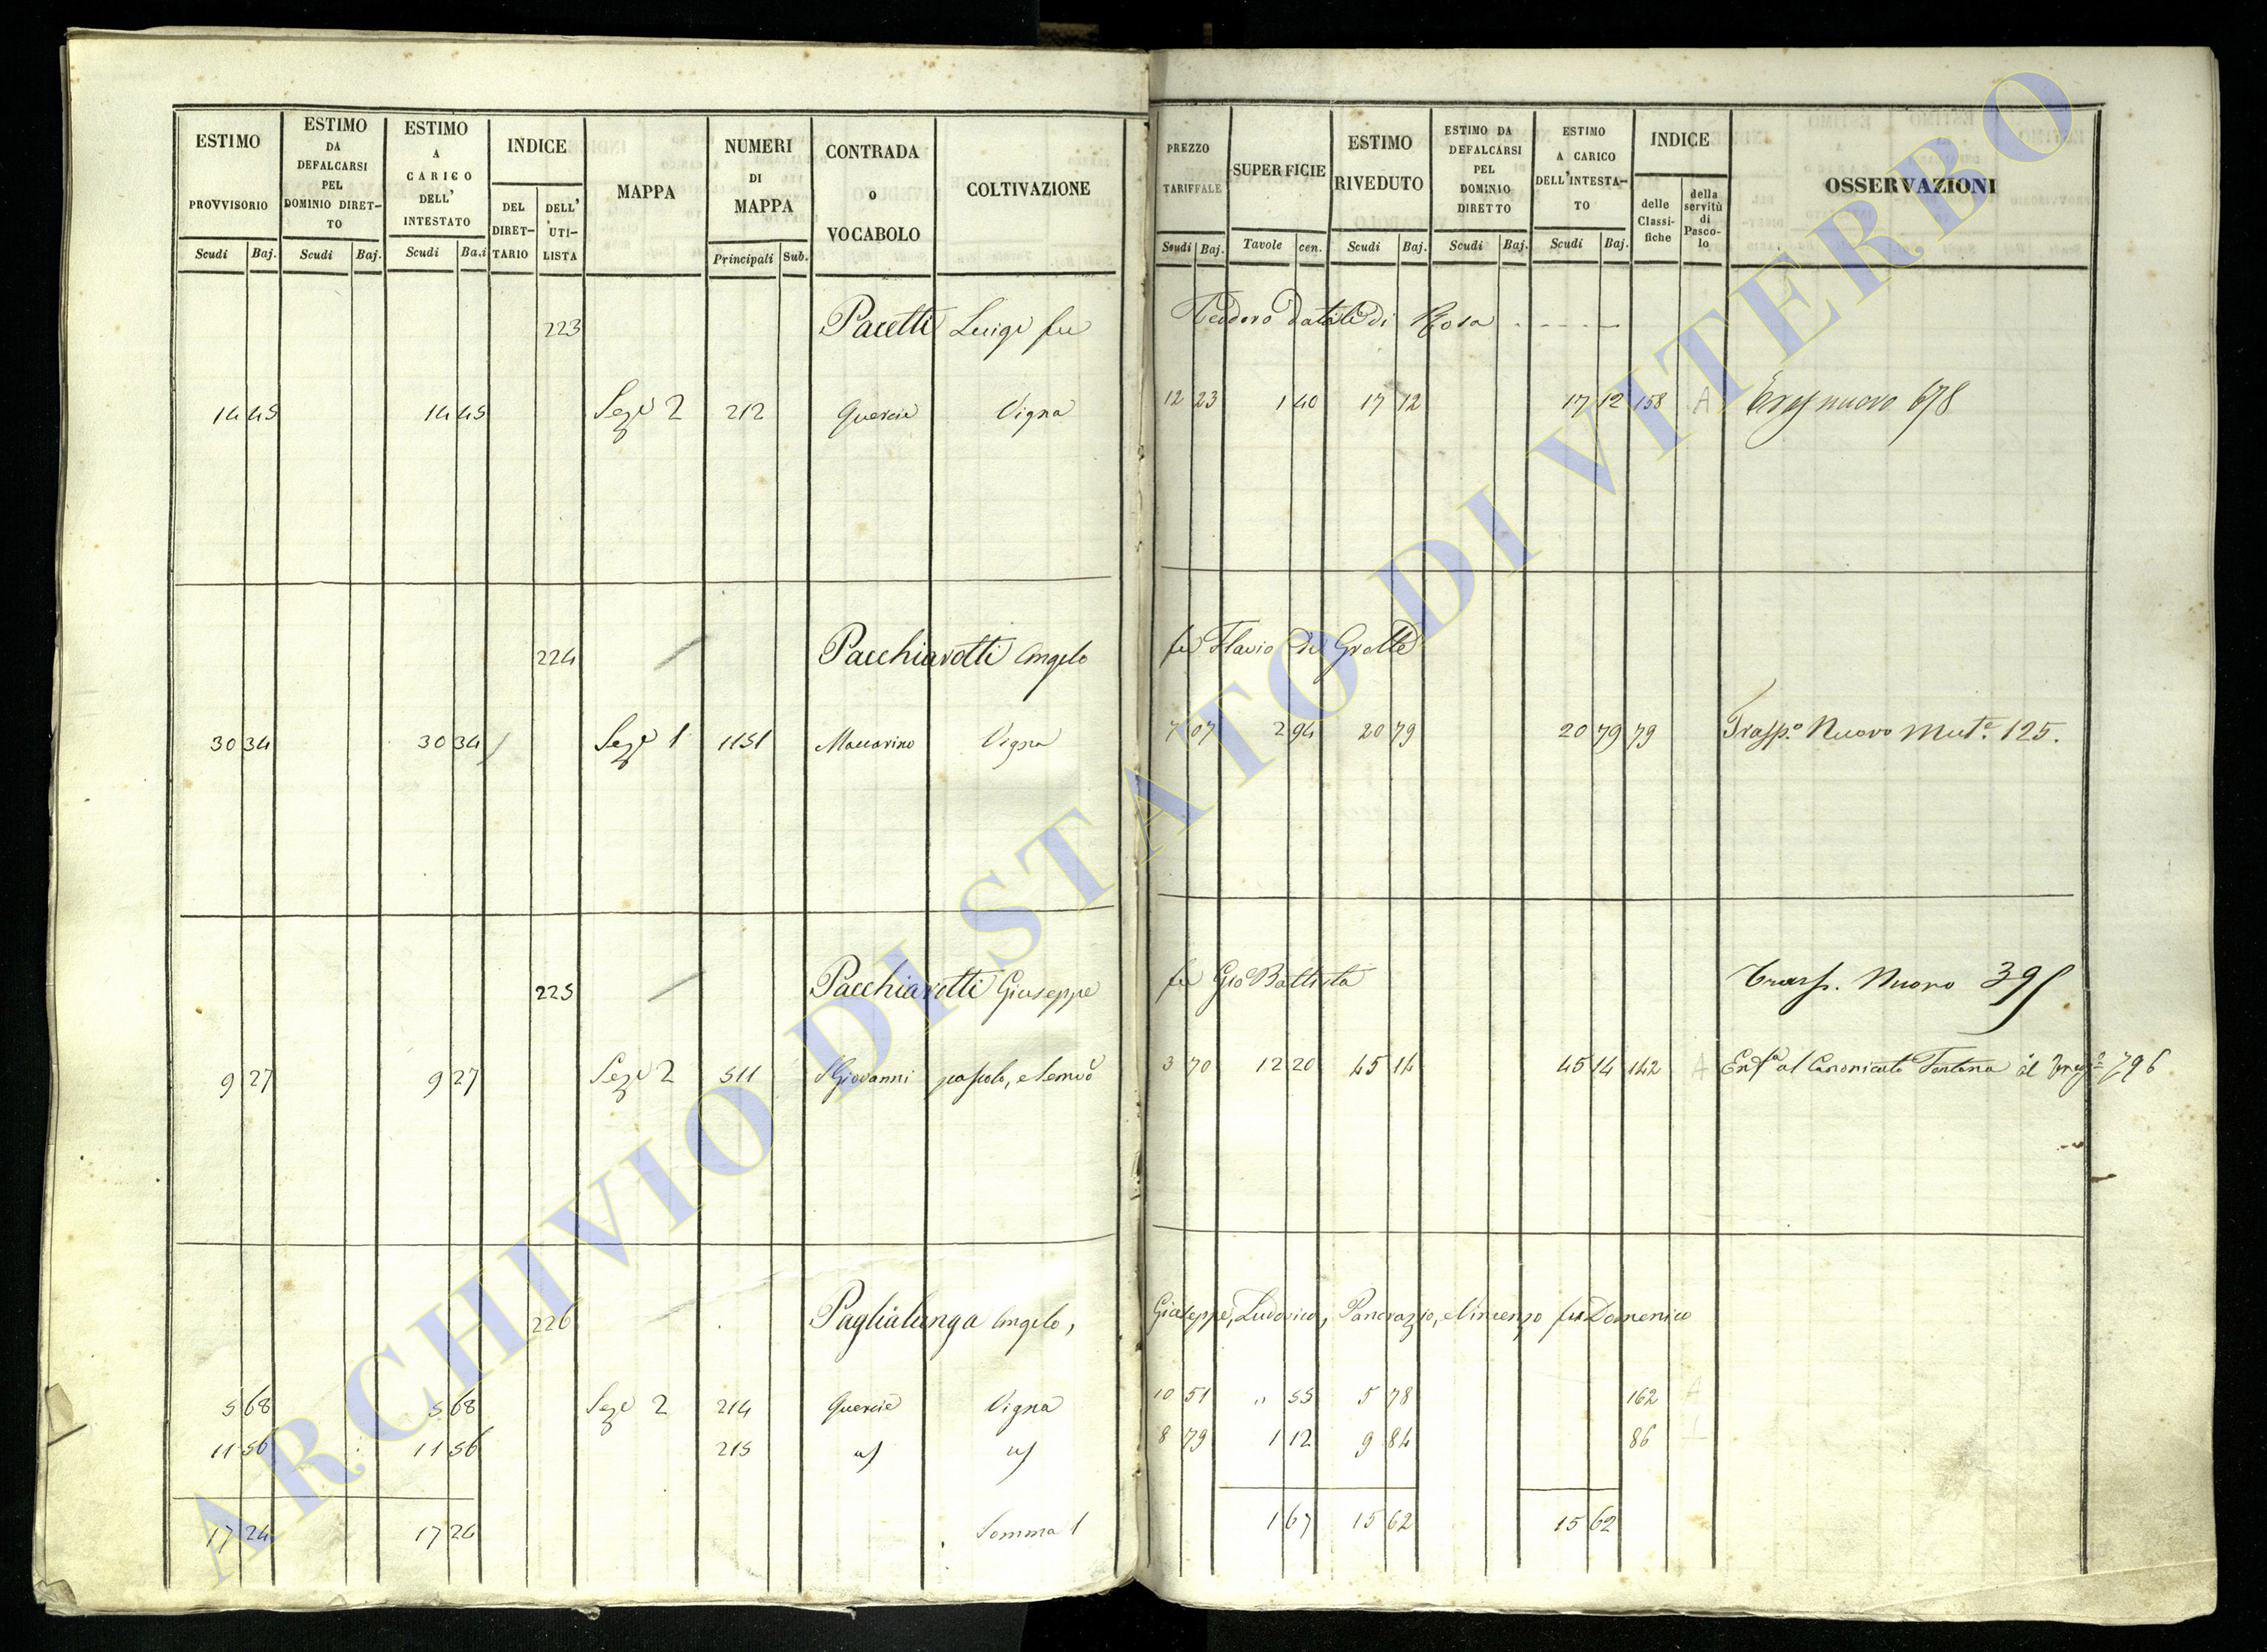 ESTIMO PROVVISORIO Scudi Baj.
ESTIMO DA DEFALCARSI PEL DOMINIO DIRET-TO Scudi Baj.
ESTIMO A CARICO DELL' INTESTATO Scudi Ba.i
INDICE DEL DIRET-TARIO DELL' UTI-LISTA
MAPPA
NUMERI DI MAPPA Principali Sub.
CONTRADA o VOCABOLO
COLTIVAZIONE
PREZZO TARIFFALE Scudi Baj.
SUPERFICIE Tavole cen.
ESTIMO RIVEDUTO Scudi Baj.
ESTIMO DA DEFALCARSI PEL DOMINIO DIRETTO Scudi Baj.
ESTIMO A CARICO DELL'INTESTA-TO Scudi Baj.
INDICE delle Classi-fiche della servitù di Pasco-lo
OSSERVAZIONI
223 Pacetti Luigi fu Teodoro di Rosa
14 45 14 45 Seze 2 212 Quercie Vigna 12 23 1 40 17 12 17 12 158 A nuovo 678
224 Pacchiarotti Angelo fu Flavio Grotte
30 34 30 34 Seze 1 1151 Maccarino Vigna 7 07 2 94 20 79 20 79 79 Trasp.o Nuovo Mut.e 125.
225 Pacchiarotti Giuseppe fu Gio Battista Trasp. Nuovo 395
9 27 9 27 Seze 2 511 S Giovanni pascolo, e 3 70 12 20 45 14 45 14 142 A al Canonicato Fontana al 796
226 Paglialunga Angelo, Giuseppe, Ludovico, Pancrazio, e Vincenzo fu Domenico
5 68 5 68 Seze 2 214 Quercie Vigna 10 51 " 55 5 78 162 A
11 56 11 56 215 8 79 1 12 9 84 86
17 24 17 24 Somma 1 1 67 15 62 15 62
ARCHIVIO DI STATO DI VITERBO